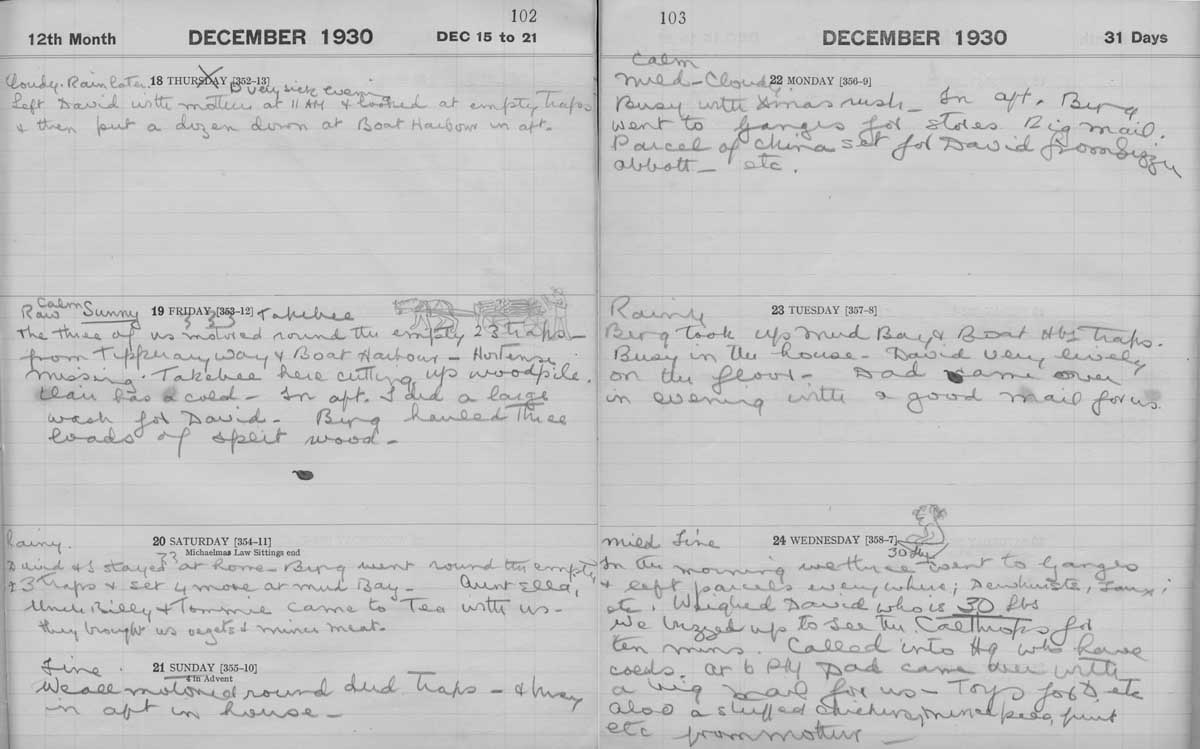 102
12th Month DECEMBER 1930 DEC 15 to 21
Cloudy. Rain later. 18 THURSDAY [352-13] D very sick evening
Left David with mother at 11 AM & looked at empty traps
& then put a dozen down at Boat Harbour in aft.
Calm
Raw Sunny 19 FRIDAY [353-12] Takebee
The three of us motored round the empty 23 traps -
from Tipperary Way & Boat Harbour - Hortense
missing. Takebee here cutting up woodpile.
has a cold - In aft. I did a large
wash for David - Berg hauled three
loads of split wood -
Rainy. 20 SATURDAY [354-11]
Michaelmas Law Sittings end
David & I stayed at home - Berg went round the empty
23 traps & set 4 more at Mud Bay - Aunt Ella,
Uncle Billy & Tommie came to Tea with us -
they brought us & mince meat.
Fine 21 SUNDAY [355-10]
4 in Advent
We all motored round dud traps - & busy
in aft in house -
103
DECEMBER 1930 31 Days
Calm
Mild - Cloudy 22 MONDAY [356-9]
Busy with Xmas rush - In aft. Berg
went to Ganges for stores. Big mail.
Parcel of china set for David from Lizzy
Abbott - etc.
Rainy 23 TUESDAY [357-8]
Berg took up Mud Bay & Boat Hbr traps.
Busy in the house - David very lively
on the floor - Dad came over
in evening with a good mail for us.
Mild Fine 24 WEDNESDAY [358-7]
30 lbs
In the morning we three went to Ganges
& left parcels everywhere;
etc. Weighed David who is 30 lbs
We buzzed up to see the Calthrops for
ten mins. Called into Hq who have
colds. At 6 PM Dad came over with
a big mail for us - Toys for D etc
also a stuffed chicken, mince pies, fruit
etc from mother -